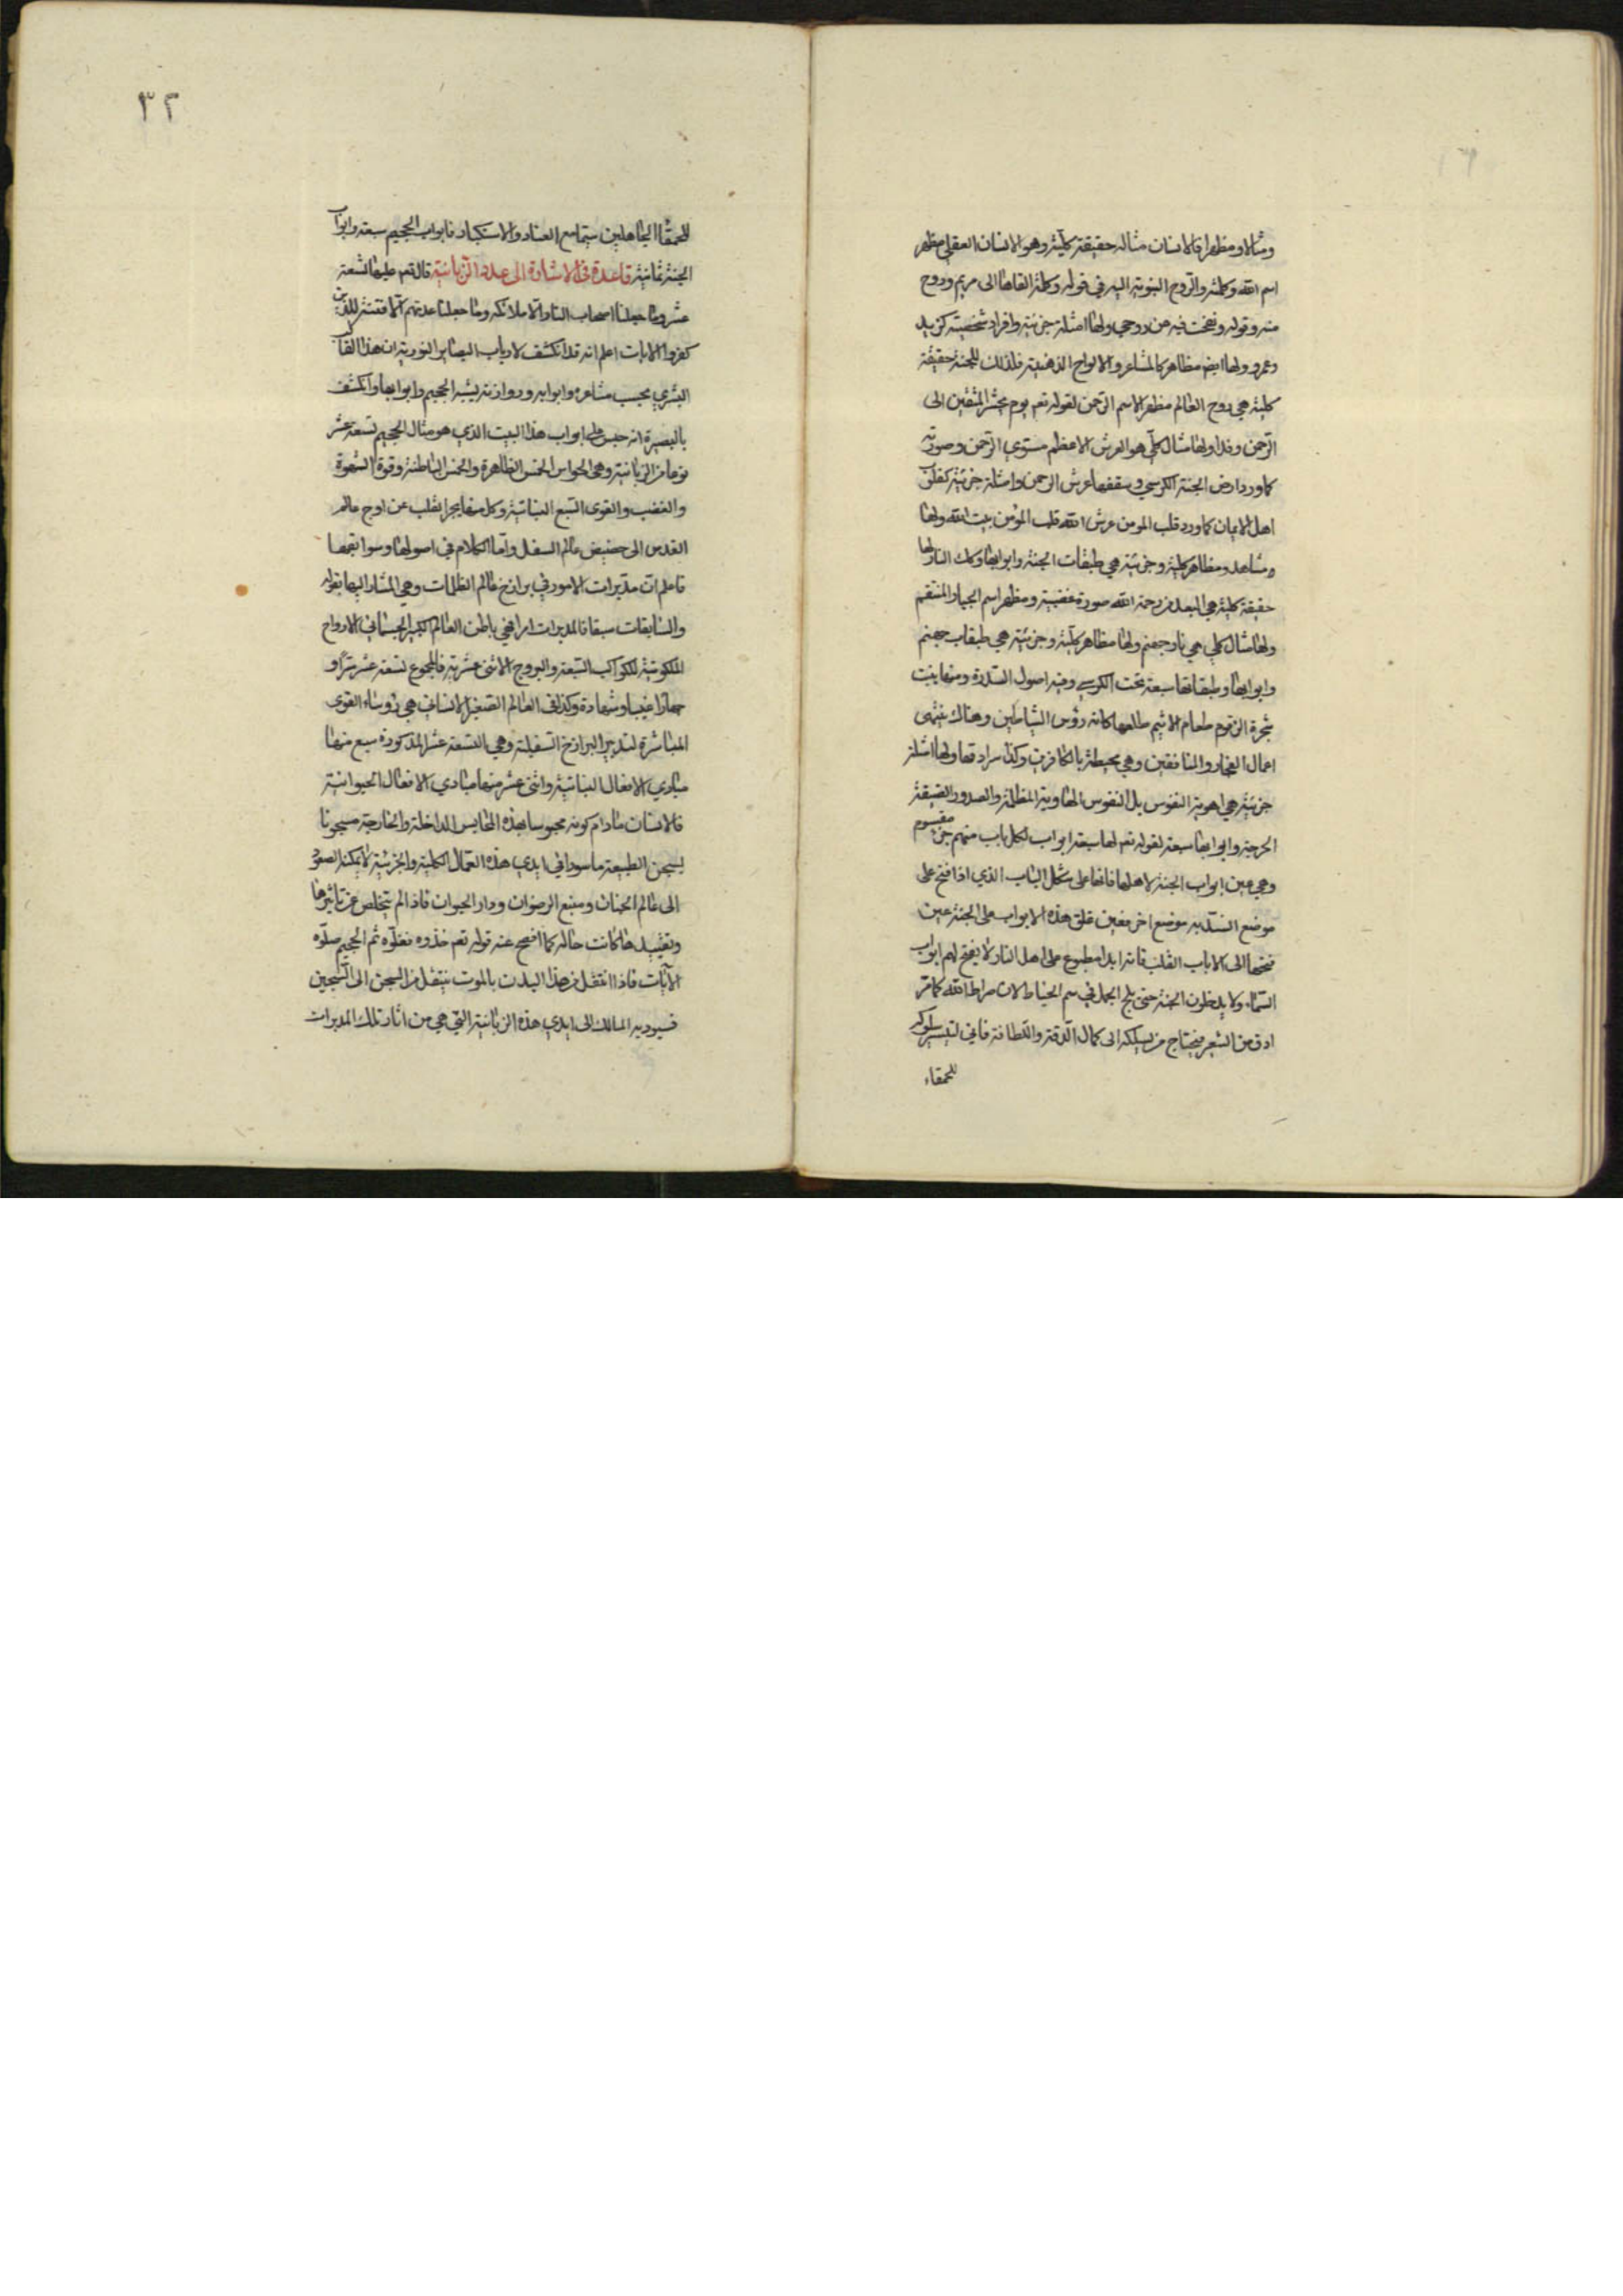 ومثالا ومظهرا فالانسان مثاله حقيقة كلية وهو الانسان العقلي مظهر
اسم الله وكلمته والروح المنسوبة اليه في قوله وكلمة القاها الى مريم وروح
منه وقوله ونفخت فيه من روحي ولها امثلة جزئية وافراد شخصية كزيد
وعمرو ولها ايض مظاهر كالمشاعر والالواح الذهنية فلذلك للجنة حقيقة
كلية هي روح العالم مظهر الاسم الرحمن لقوله تعم يوم نحشر المتقين الى
الرحمن وفدا ولها مثال كلي هو العرش الاعظم مستوي الرحمن وصورته
كما ورد ارض الجنة الكرسي وسقفها عرش الرحمن وامثلة جزئية كقلوب
اهل الايمان كما ورد قلب المومن عرش الله قلب المؤمن بيت الله ولها
ومشاهد ومظاهر كلية وجزئية هي طبقات الجنة وابوابها وكك النار لها
حقيقة كلية هي البعد من رحمة الله صورة غضبه ومظهر اسم الجبار المنتقم
ولها مثال كلي هي نار جهنم ولها مظاهر كلية وجزئية هي طبقات جهنم
وابوابها وطبقاتها سبعة تحت الكرسي وفيه اصول السدرة ومنها ينبت
شجرة الزقوم طعام الاثيم طلعها كانه رؤس الشياطين وهناك ينتهى
اعمال الفجار والمنافقين وهي محيطة بالكافرين وكذا سرادقها ولها امثلة
جزئية هي اهوية النفوس بل النفوس الهاوية المظلمة والصدور الضيقة
الحرجة وابوابها سبعة لقوله تعم لها سبعة ابواب لكل باب منهم جزء مقسوم
وهي عين ابواب الجنة لاهلها فانها على شكل الباب الذي اذا فتح على
موضع انسد به موضع اخر فعين غلق هذه الابواب على الجنة عين
فتحها الى الا باب القلب فانه ابدا مطبوع على اهل النار لا يفتح لهم ابواب
السماء ولا يدخلون الجنة حتى يلج الجمل في سم الخياط لان صراط الله كما مر
ادق من الشعر فيحتاج من يسلكه الى كمال الدقة واللطافة فاني لتيسر سلوكه
للحمقاء
للحمقا الجاهلين سيما مع العناد والاستكبار فابواب الجحيم سبعة وابواب
الجنة ثمانية قاعدة في الاشارة الى عدد الزبانية قال تعم عليها تسعة
عشر وما جعلنا اصحاب النار الا ملائكه وما جعلنا عدتهم الا فتنة للذين
كفروا الايات اعلم انه قد انكشف لارباب البصاير النورية ان هذا القالب
البشري بحسب مشاعره وابوابه وروازنه يشبه الجحيم وابوابها وانكشف
بالبصيرة انه حبس على ابواب هذا البيت الذي هو مثال الجحيم تسعة عشر
نوعا من الزبانية وهي الحواس الخمس الظاهرة والخمس الباطنة وقوة الشهوة
والغضب والقوى السبع النباتية وكل منها يجر القلب عن اوج عالم
القدس الى حضيض عالم السفل واما الكلام في اصولها وسوابقها
فاعلم ان مدبرات الامور في برازخ عالم الظلمات وهي المشار اليها بقوله
والسابقات سبقا فالمدبرات امرا فهي باطن العالم الكبير الجسماني الارواح
الملكوتية للكواكب السبعة والبروج الاثنى عشرية فالمجموع تسعة عشر سرا و
جهارا غيبا وشهادة وكذا في العالم الصغير الانساني هي رؤساء القوى
المباشرة لتدبير البرازخ السفلية وهي التسعة عشر المذكورة سبع منها
مبادي الافعال النباتية واثنى عشر منها مبادي الافعال الحيوانية
فالانسان مادام كونه محبوسا بهذه المحابس الداخلة والخارجة مسجونا
بسجن الطبيعة ماسورا في ايدي هذه العمال الكلية والجزئية لا يمكنه الصعود
الى عالم الجنان ومنبع الرضوان ودار الحيوان فاذا لم يتخلص من تاثيرها
وتقييدها كانت حاله كما افصح عنه قوله تعم خذوه فغلوه ثم الجحيم صلوه
الايات فاذا انتقل من هذا البدن بالموت ينتقل من السجن الى السجين
فسيوديه المسالك الى ايدي هذه الزبانية التي هي من اثار تلك المدبرات
٣٢